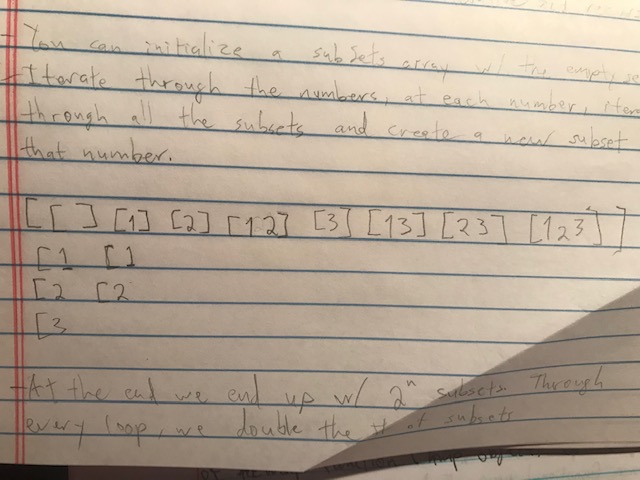 - You can initialize a subsets array w/ the empty se
- Iterate through the numbers, at each number, itera
through all the subsets and create a new subset
that number.
[[ ] [1] [2] [1 2] [3] [1 3] [2 3] [1 2 3]]
[1 [1
[2 [2
[3
- At the end we end up w/ 2ⁿ subsets. Through
every loop, we double the # of subsets